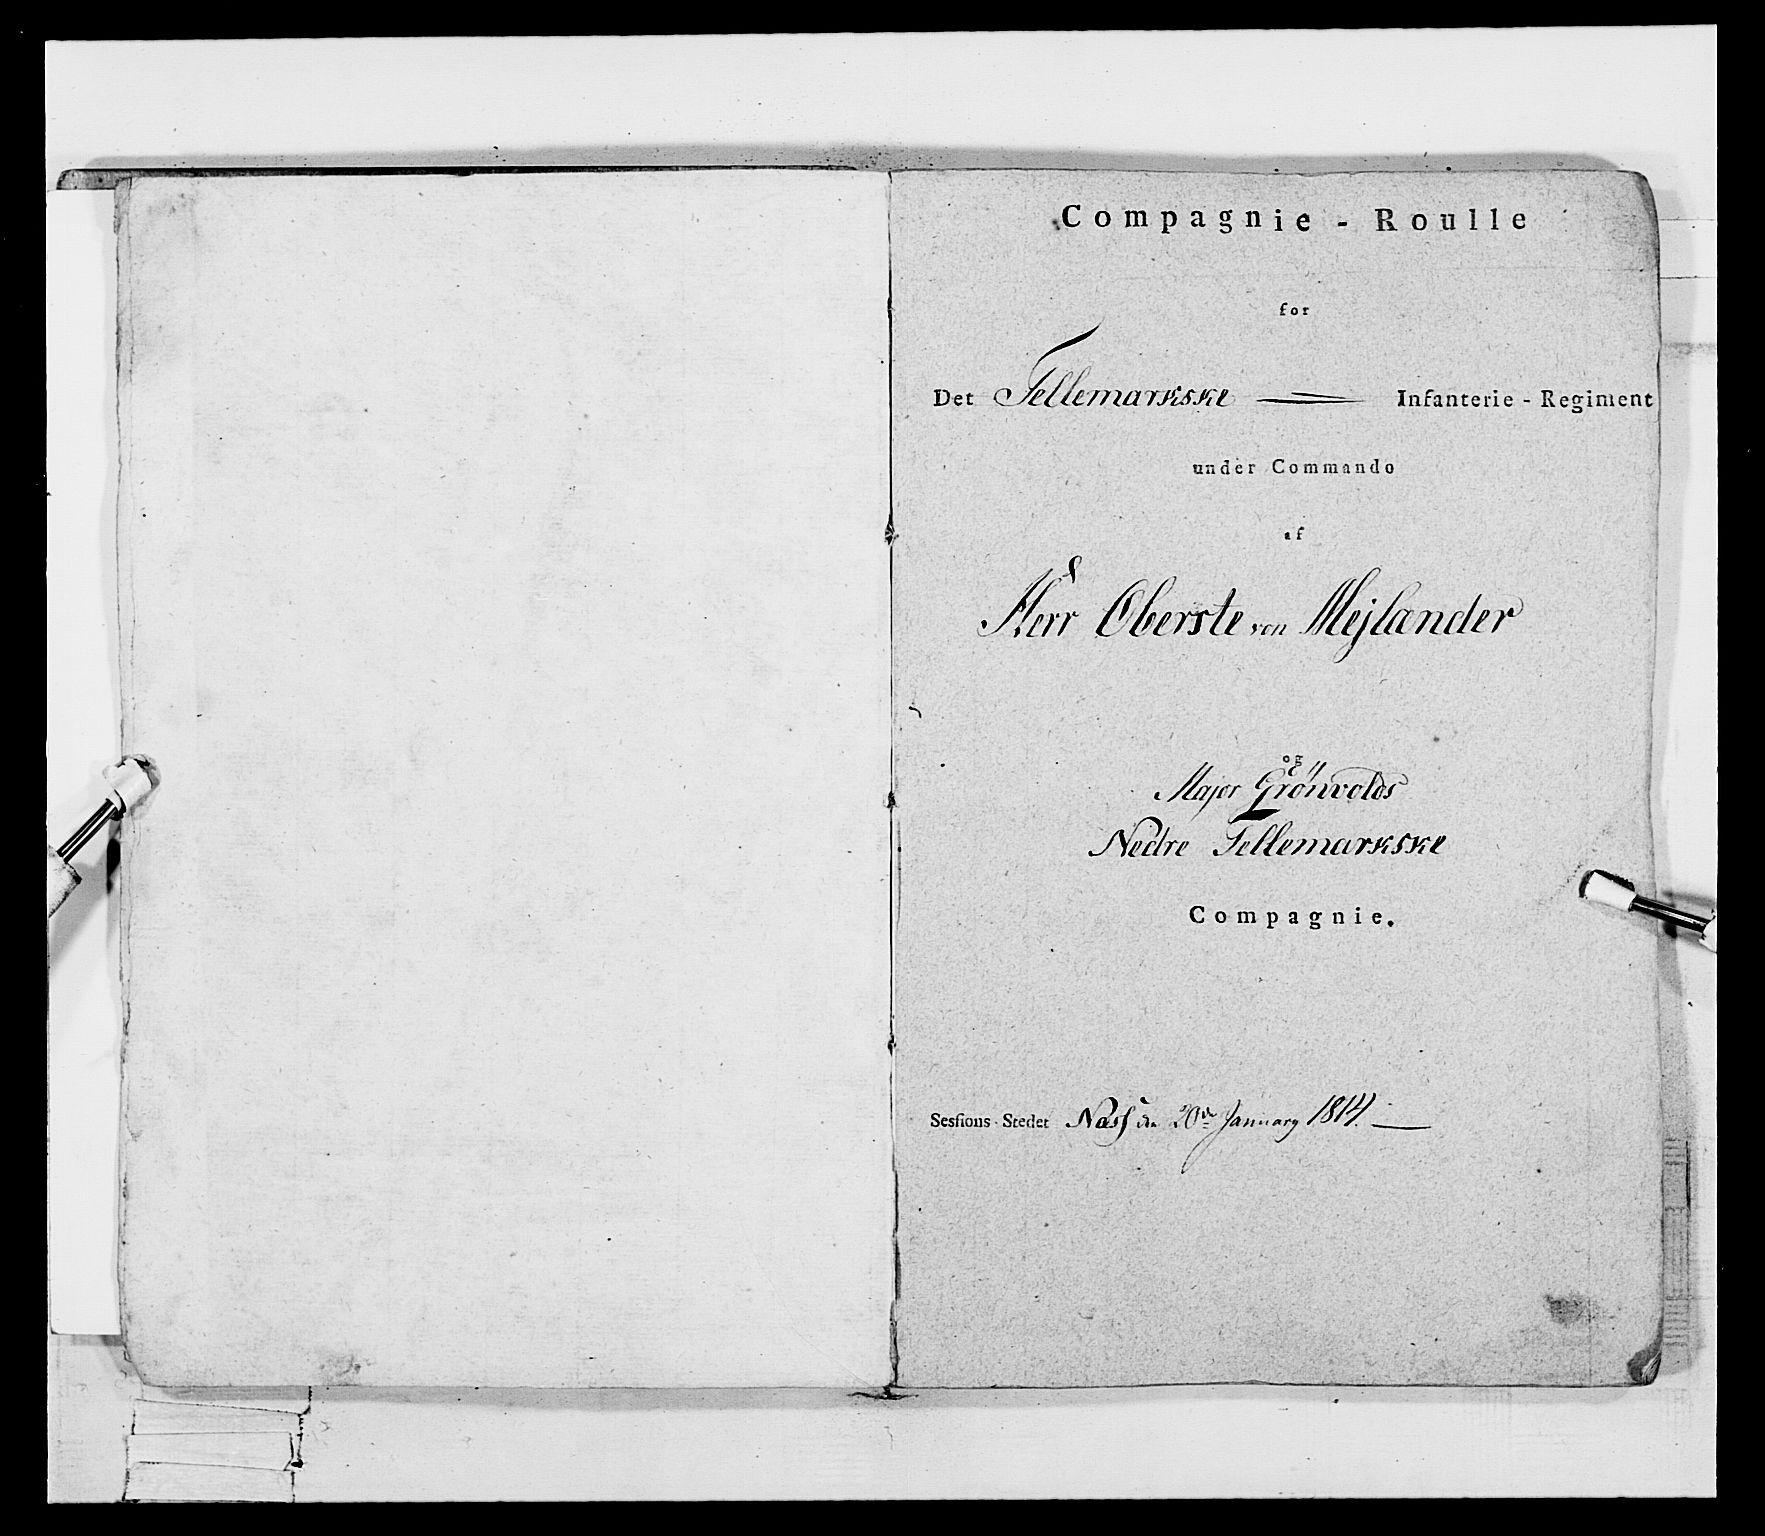 Compagnie - Roulle
for
Det Tellemarkske Infanterie - Regiment
under Commando
af
Herr Oberste von Mejlænder
og
Major Grönvolds
Nedre Tellemarkske
Compagnie.
Sessions-Stedet Næss den 20de January 1814.